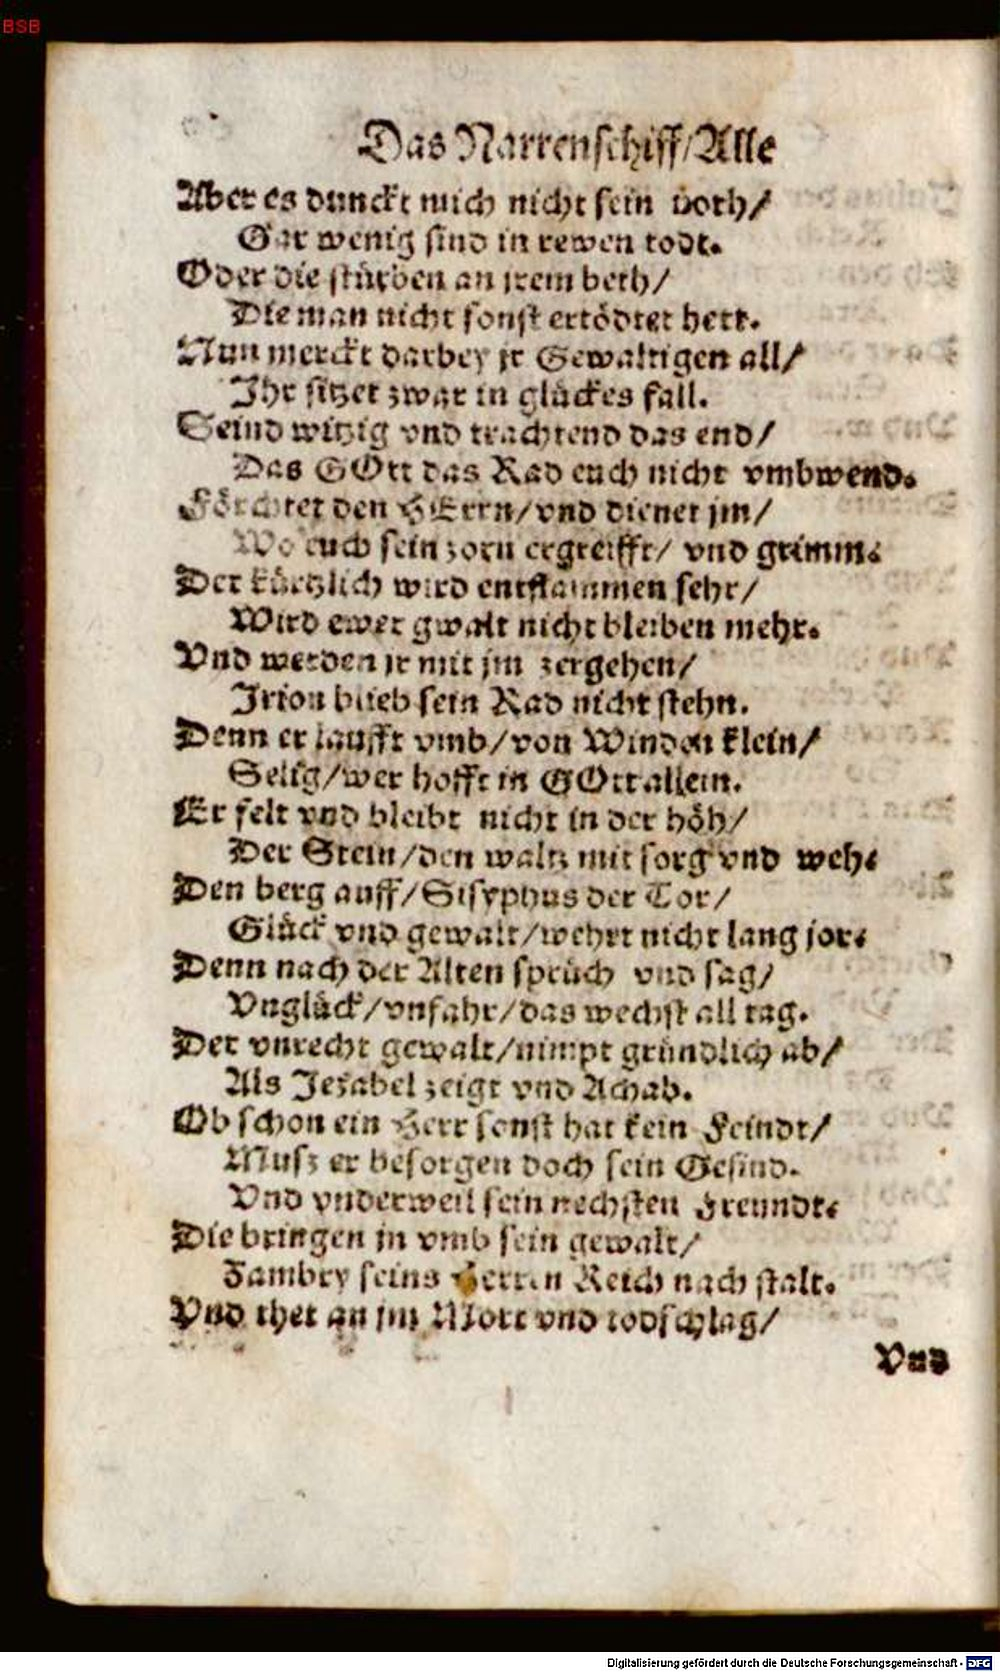 BSB
Das Narrenschiff/Alle
Aber es dunckt mich nicht sein noth/
Gar wenig sind in rewen todt.
Oder die stürben an jrem beth/
Die man nicht sonst ertödtet hett.
Nun merckt darbey jr Gewaltigen all/
Ihr sitzet zwar in glückes fall.
Seind witzig vnd trachtend das end/
Das GOtt das Rad euch nicht vmbwend.
Förchtet den HErrn/vnd dienet jm/
Wo euch sein zorn ergreifft/ vnd grimm.
Der kürtzlich wird entflammen sehr/
Wird ewer gwalt nicht bleiben mehr.
Vnd werden jr mit jm zergehen/
Ixion blieb sein Rad nicht stehn.
Denn er laufft vmb/von Winden klein/
Selig/wer hofft in GOtt allein.
Er felt vnd bleibt nicht in der höh/
Der Stein/den waltz mit sorg vnd weh.
Den berg auff/Sisyphus der Tor/
Glück vnd gewalt/wehrt nicht lang jor.
Denn nach der Alten sprüch vnd sag/
Vnglück/vnfahr/das wechst all tag.
Der vnrecht gewalt/nimpt gründlich ab/
Als Jezabel zeigt vnd Achab.
Ob schon ein Herr sonst hat kein Feindt/
Musz er besorgen doch sein Gesind.
Vnd vnderweil sein nechsten Freundt.
Die bringen jn vmb sein gewalt/
Zambry seins Herren Reich nach stalt.
Vnd thet an jm Mort vnd todschlag/
Vnd
Digitalisierung gefördert durch die Deutsche Forschungsgemeinschaft - DFG